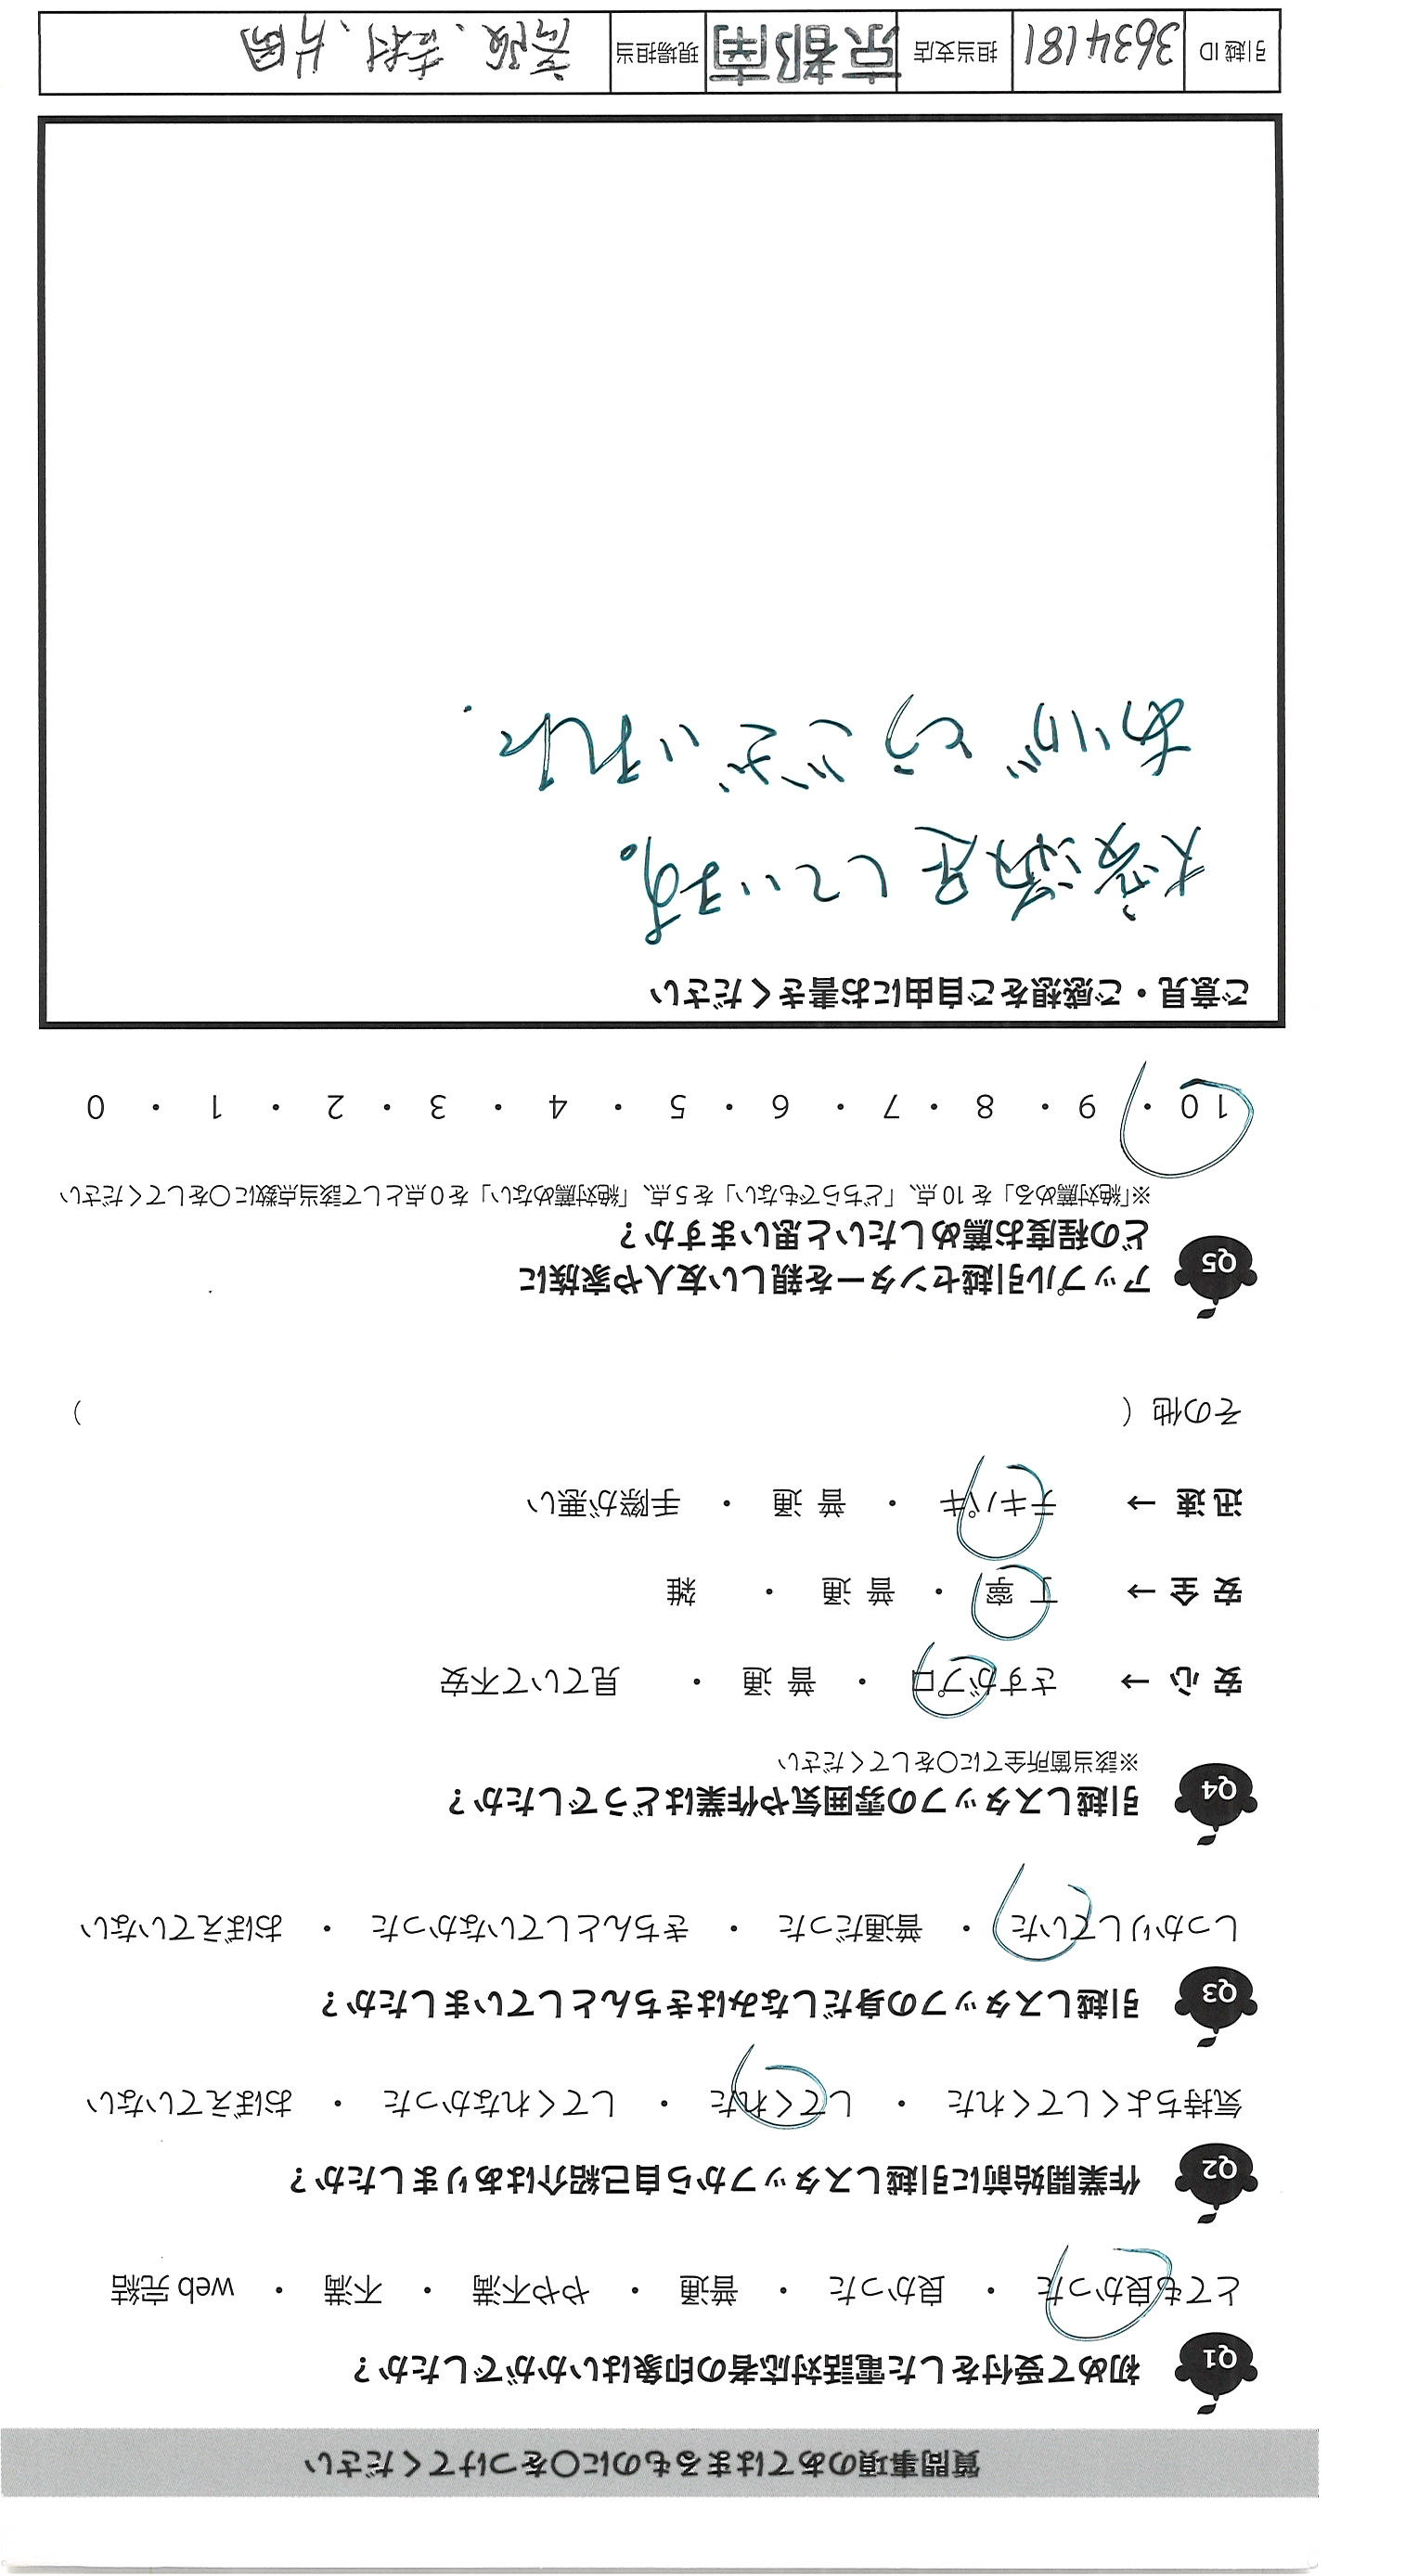 質問事項のあてはまるものに〇をつけてください
Q1 初めて受付をした電話対応者の印象はいかがでしたか？
とても良かった ・ 良かった ・ 普通 ・ やや不満 ・ 不満 ・ web 完結
Q2 作業開始前に引越しスタッフから自己紹介はありましたか？
気持ちよくしてくれた ・ してくれた ・ してくれなかった ・ おぼえていない
Q3 引越しスタッフの身だしなみはきちんとしていましたか？
しっかりしていた ・ 普通だった ・ きちんとしていなかった ・ おぼえていない
Q4 引越しスタッフの雰囲気や作業はどうでしたか？
※該当箇所全てに〇をしてください
安 心 → さすがプロ ・ 普 通 ・ 見ていて不安
安 全 → 丁 寧 ・ 普 通 ・ 雑
迅 速 → テキパキ ・ 普 通 ・ 手際が悪い
その他 （ ）
Q5 アップル引越センターを親しい友人や家族に
どの程度お薦めしたいと思いますか？
※「絶対薦める」を 10 点、「どちらでもない」を 5 点、「絶対薦めない」を 0 点として該当点数に〇をしてください
10 ・ 9 ・ 8 ・ 7 ・ 6 ・ 5 ・ 4 ・ 3 ・ 2 ・ 1 ・ 0
ご意見・ご感想をご自由にお書きください
大変満足しています。
ありがとうございました.
引越 ID 3634181 担当支店 京都南 現場担当 高阪、吉村、片岡